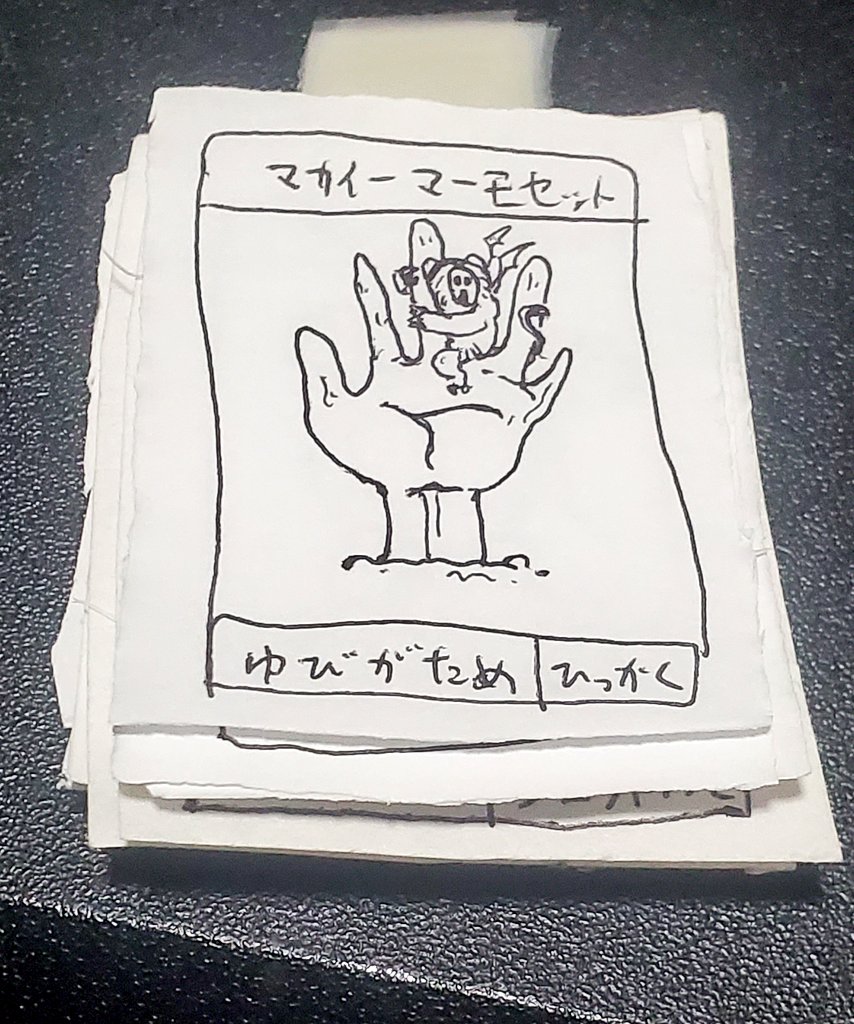 マカイーマーモセット
ゆびがため ひっかく